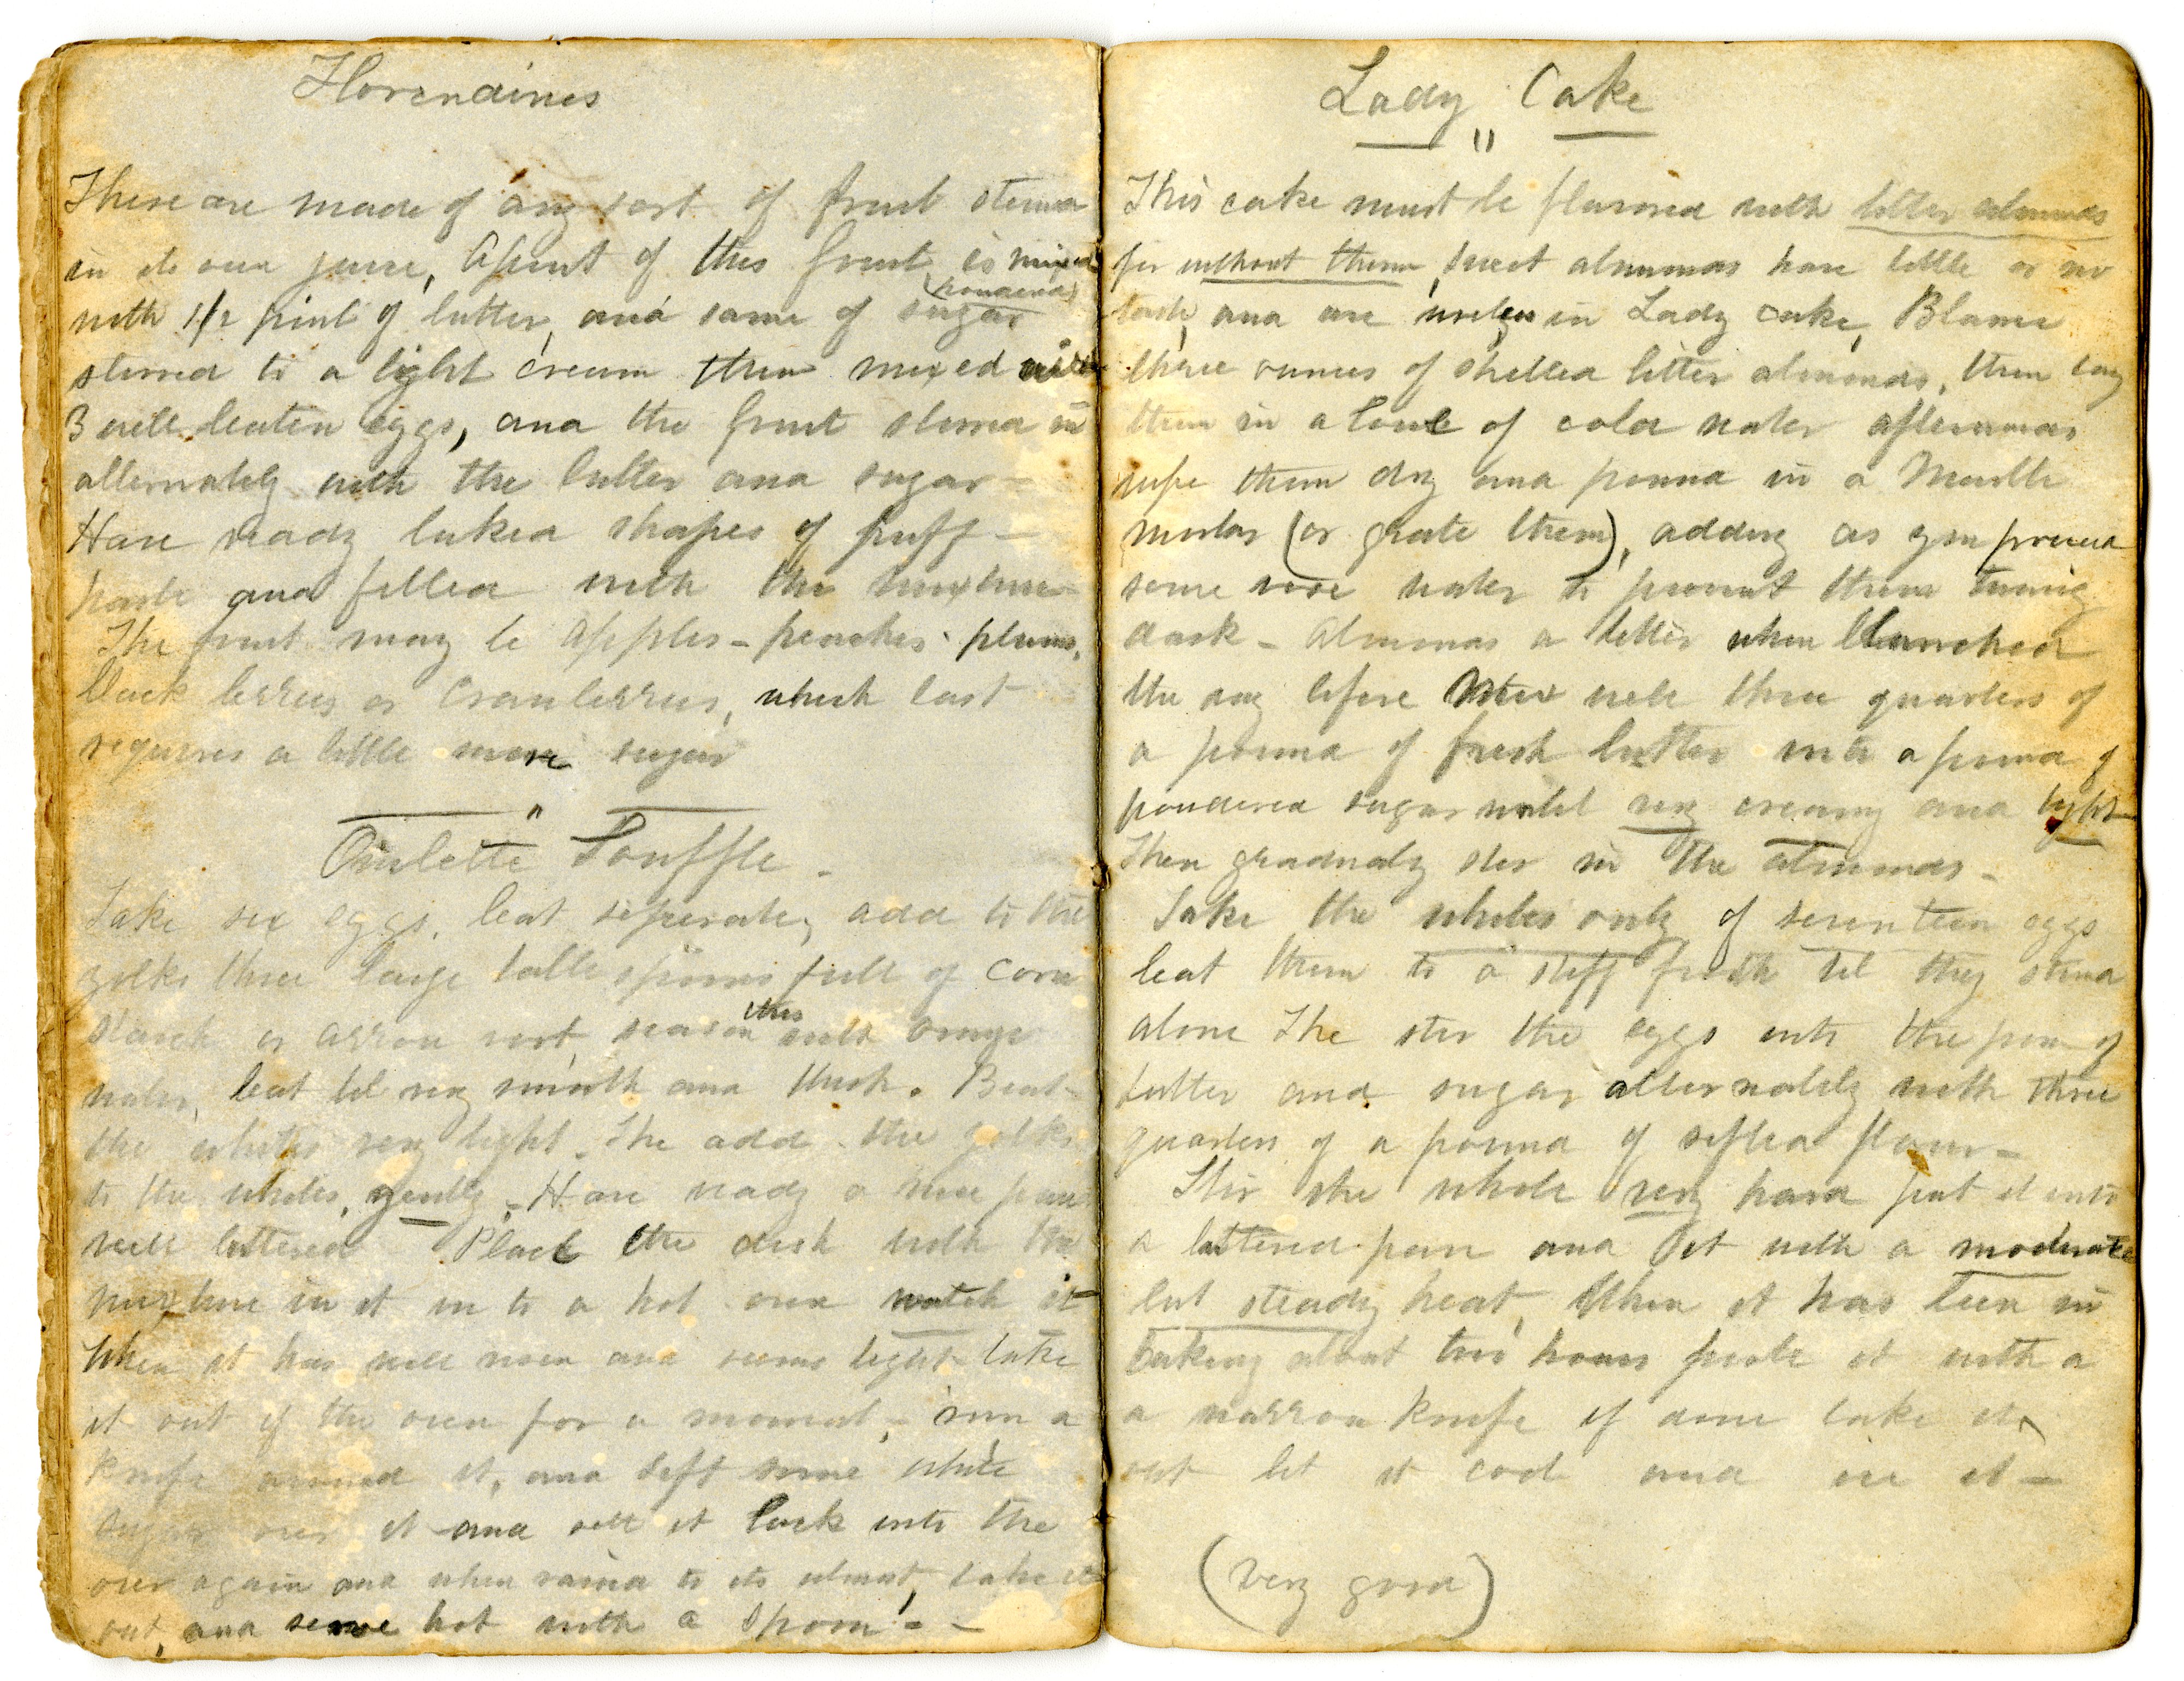 Florendines
These are made of any sort of fruit stewed
in its own juice, A pint of this fruit is mixed
with 1/2 pint of butter, and same of sugar (powdered)
stirred to a light cream then mixed with
3 well beaten eggs, and the fruit stirred in
alternately with the butter and sugar -
Have ready baked shapes of puff -
paste and filled with the mixture -
The fruit may be apples - peaches - plums,
black berries or Cranberries, which last
requires a little more sugar
"
Omlette Souffle -
Take six eggs, beat seperately add to the
yolks three large table spoons full of corn
starch or arrow root, season this with orange
water, beat til very smooth and thick. Beat -
the whites very light. The add - the yolks
to the whites, gently, - Have ready a nice pan
well buttered - Place the dish with the
mixture in it in to a hot oven watch it -
When it has well risen and seems light take
it out of the oven for a moment, - run a
knife around it, and sift some white
sugar over it - and set it back into the
oven again and when raised to its utmost, take it
out, and serve hot with a spoon - -
Lady " Cake
This cake must be flavored with bitter almonds
for without them, sweet almonds have little or no
taste, and are useless in Lady cake, Blanch
three ounces of shelled bitter almonds, then lay
them in a bowl of cold water afterwards
wipe them dry and pound in a Marble
mortar (or grate them), adding as you proceed
some rose water to prevent them turning
dark - Almonds a better when blanched
the day before Mix well three quarters of
a pound of fresh butter into a pound of
powdered sugar until very creamy and light -
Then gradualy stir in the almonds -
Take the whites only of seventeen eggs
beat them to a stiff froth til they stand
alone The stir the eggs into the pan of
butter and sugar alternately with three
quarters of a pound of sifted flour -
Stir the whole very hard put it into
a buttered pan and set with a moderate
but steady heat, When it has been in
baking about two hours probe it with a
a narrow knife if done take it
out let it cool and ice it -
(very good)